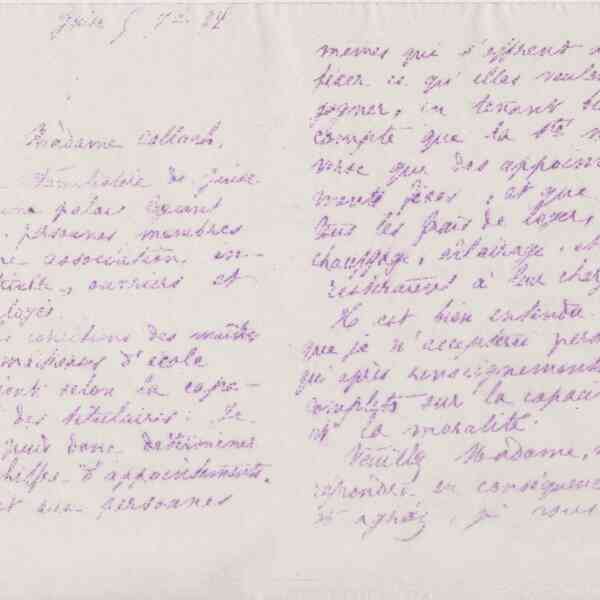 Guise 5 7bre 84
Madame Collard,
Familistère de Guise
un palais
personnes membres
association, in-
ouvriers et
loyés.
conditions des maîtres
maîtresses d'école
selon la capa-
des titulaires. Je
puis donc déterminer
chiffre d'appointements,
aux personnes
mêmes qui s'offrent
fixer ce qu'elles veulent
gagner, en tenant
compte que la Sté
verse que des appointe-
ments fixes, et que
tous les frais de loyer,
chauffage, éclairage, et
resteraient à leur charge
Il est bien entendu
que je n'accepterai
qu'après renseignements
complets sur la capaci
et la moralité.
Veuillez Madame,
répondre en conséquence
et agréez, je vous